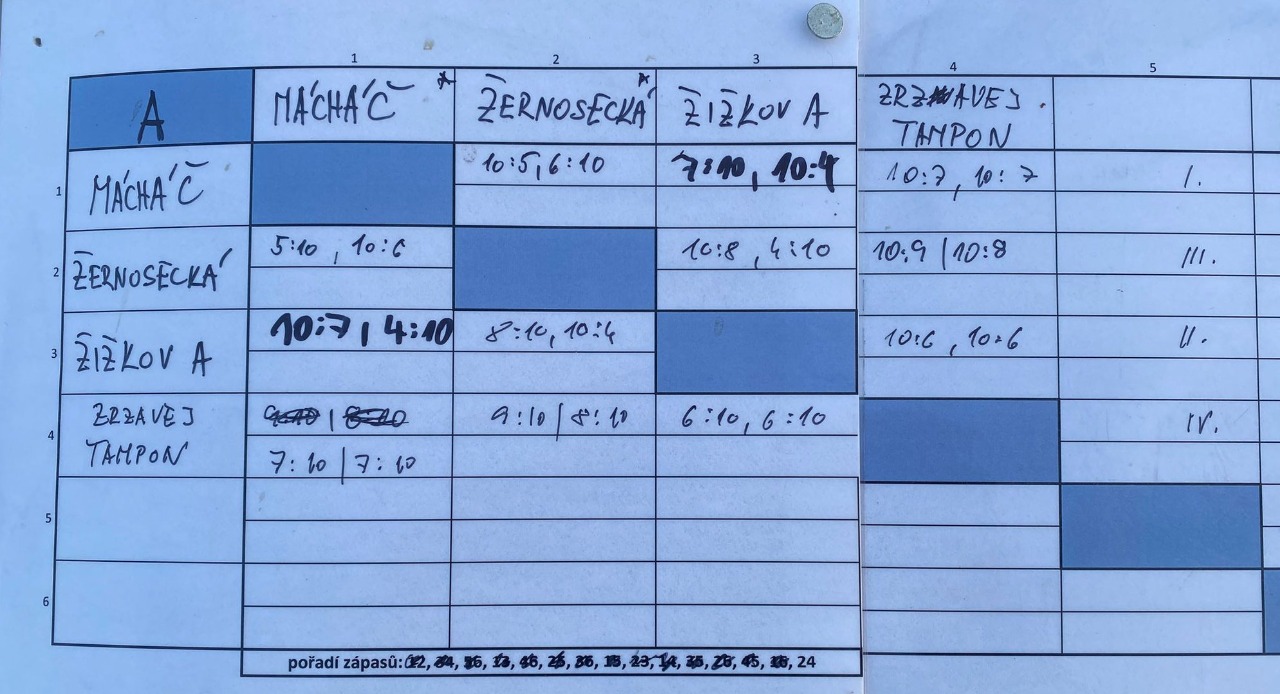 1 2 3 4 5
A MÁCHÁČ ŽERNOSECKÁ ŽIŽKOV A ZRZAVEJ
TAMPON
1 MÁCHÁČ 10:5, 6:10 7:10, 10:4 10:7, 10:7 I.
2 ŽERNOSECKÁ 5:10, 10:6 10:8, 4:10 10:9 | 10:8 III.
3 ŽIŽKOV A 10:7, 4:10 8:10, 10:4 10:6, 10:6 II.
4 ZRZAVEJ 9:10 | 8:10 6:10, 6:10 IV.
TAMPON 7:10 | 7:10
5
6
pořadí zápasů: 24